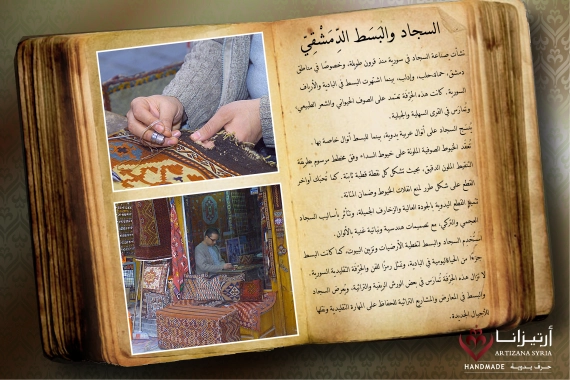 السجاد والبَسَط الدِّمَشْقيّ
نشأت صناعة السجاد في سورية منذ قرون طويلة، وخصوصًا في مناطق
دمشق، حماة، حلب، وإدلب، بينما اشتهرت البسط في البادية والأرياف
السورية. كانت هذه الحِرْفة تعتمد على الصوف الحيواني والشعر الطبيعي،
وتمارس في القرى السهلية والجبلية.
ينسج السجاد على أنوال عربية يدوية، بينما للبسط أنوال خاصة بها.
تُعقد الخيوط الصوفية الملونة على خيوط السداء وفق مخطط مرسوم بطريقة
التنقيط الملون الدقيق، بحيث تشكل كل نقطة قطبة ثابتة. كما تُحبك أواخر
القطع على شكل طرر لمنع انفلات الخيوط وضمان المتانة.
تتميز القطع اليدوية بالجودة العالية والزخارف الجميلة، وتتأثر بأساليب السجاد
العجمي والتركي، مع تصميمات هندسية ونباتية غنية بالألوان.
استُخدم السجاد والبسط لتغطية الأرضيات وتزيين البيوت، كما كانت البسط
جزءًا من الحياة اليومية في البادية، وتمثل رمزًا للفن والحِرْفة التقليدية السورية.
لا تزال هذه الحِرْفة تُمارَس في بعض الورش الريفية والتراثية، ويُعرض السجاد
والبسط في المعارض والمشاريع التراثية للحفاظ على المهارة التقليدية ونقلها
للأجيال الجديدة.
أرتيزانا
ARTIZANA SYRIA
HANDMADE حرف يدوية